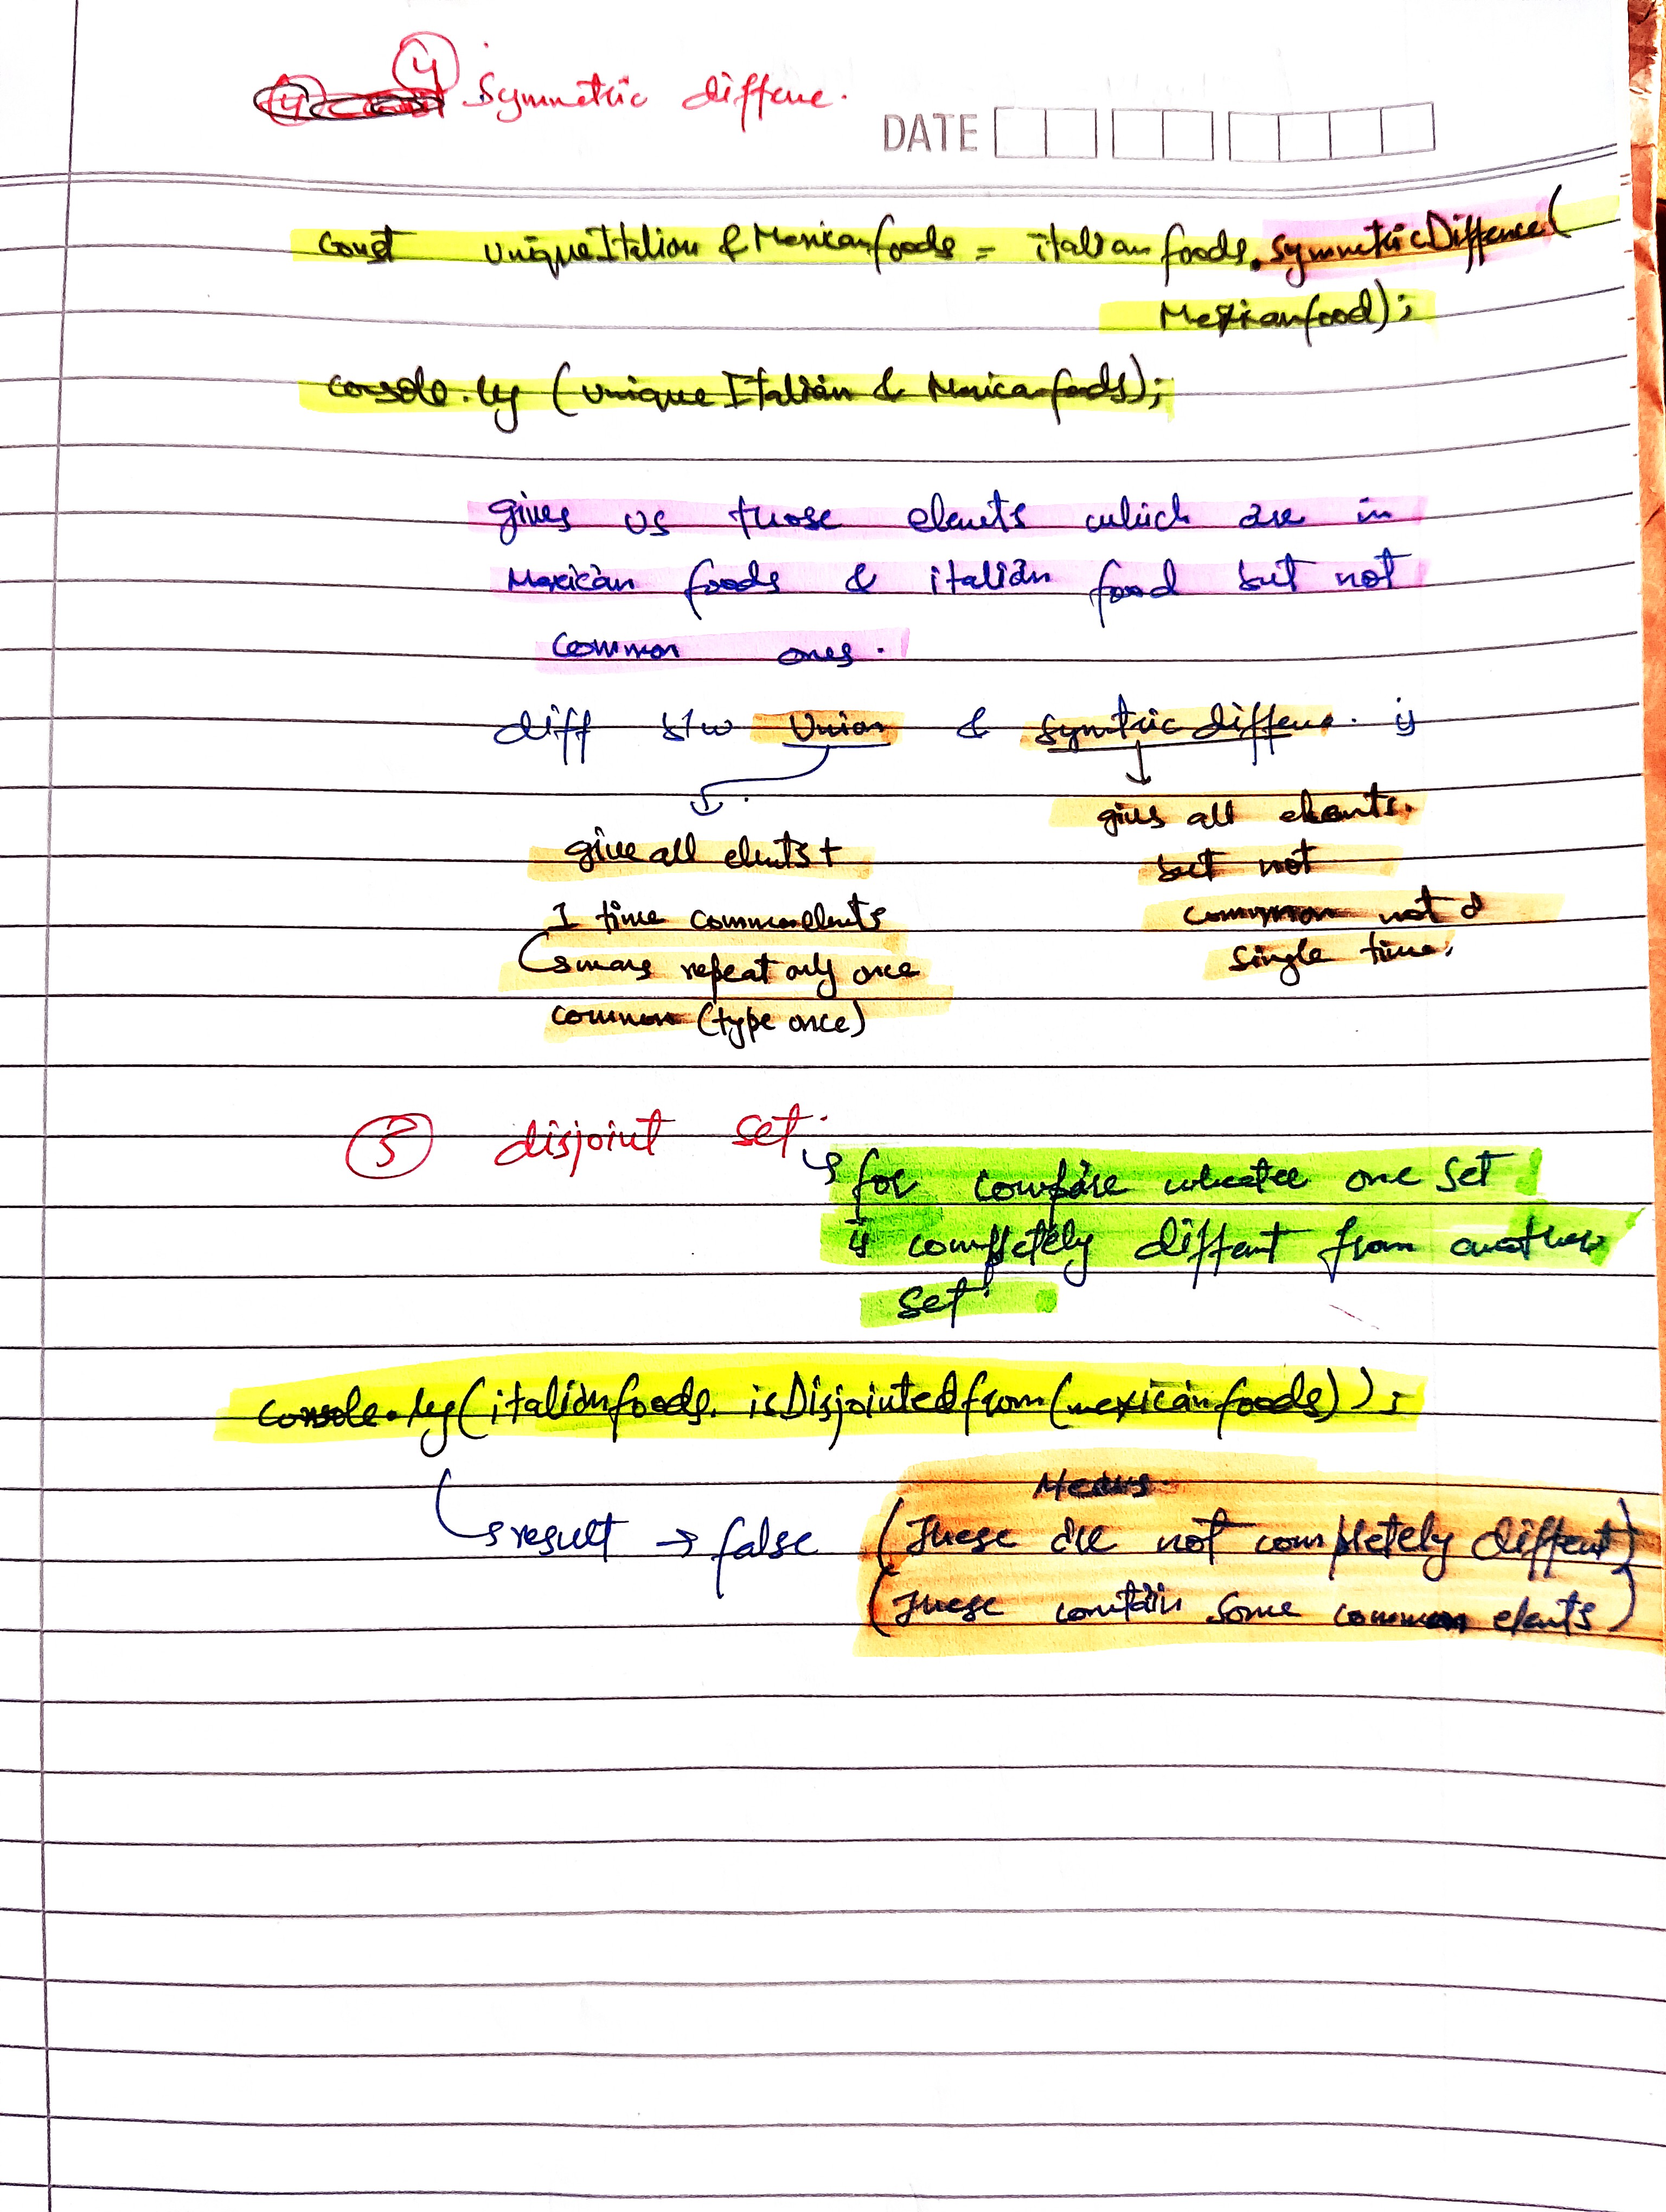 4 Symmetric diffene.
DATE
const uniqueItalian & Mexicanfoods = italianfoods.symmetricDiffence(
Mexicanfood);
console.log (unique Italian & Mexicanfoods);
gives us those elemts which are in
Mexican foods & italian food but not
common ones.
diff b/w Union & symtric diffene. is
give all elemts +
1 time common elemts
means repeat only once
common (type once)
gives all elements.
but not
common not a
single time.
5 disjoint set:
for compare wheather one set
is completely diffent from another
set.
console.log(italianfoods.isDisjointedfrom(mexicanfoods));
result → false
Means
(These are not completely diffent)
(These contain some common elemts)